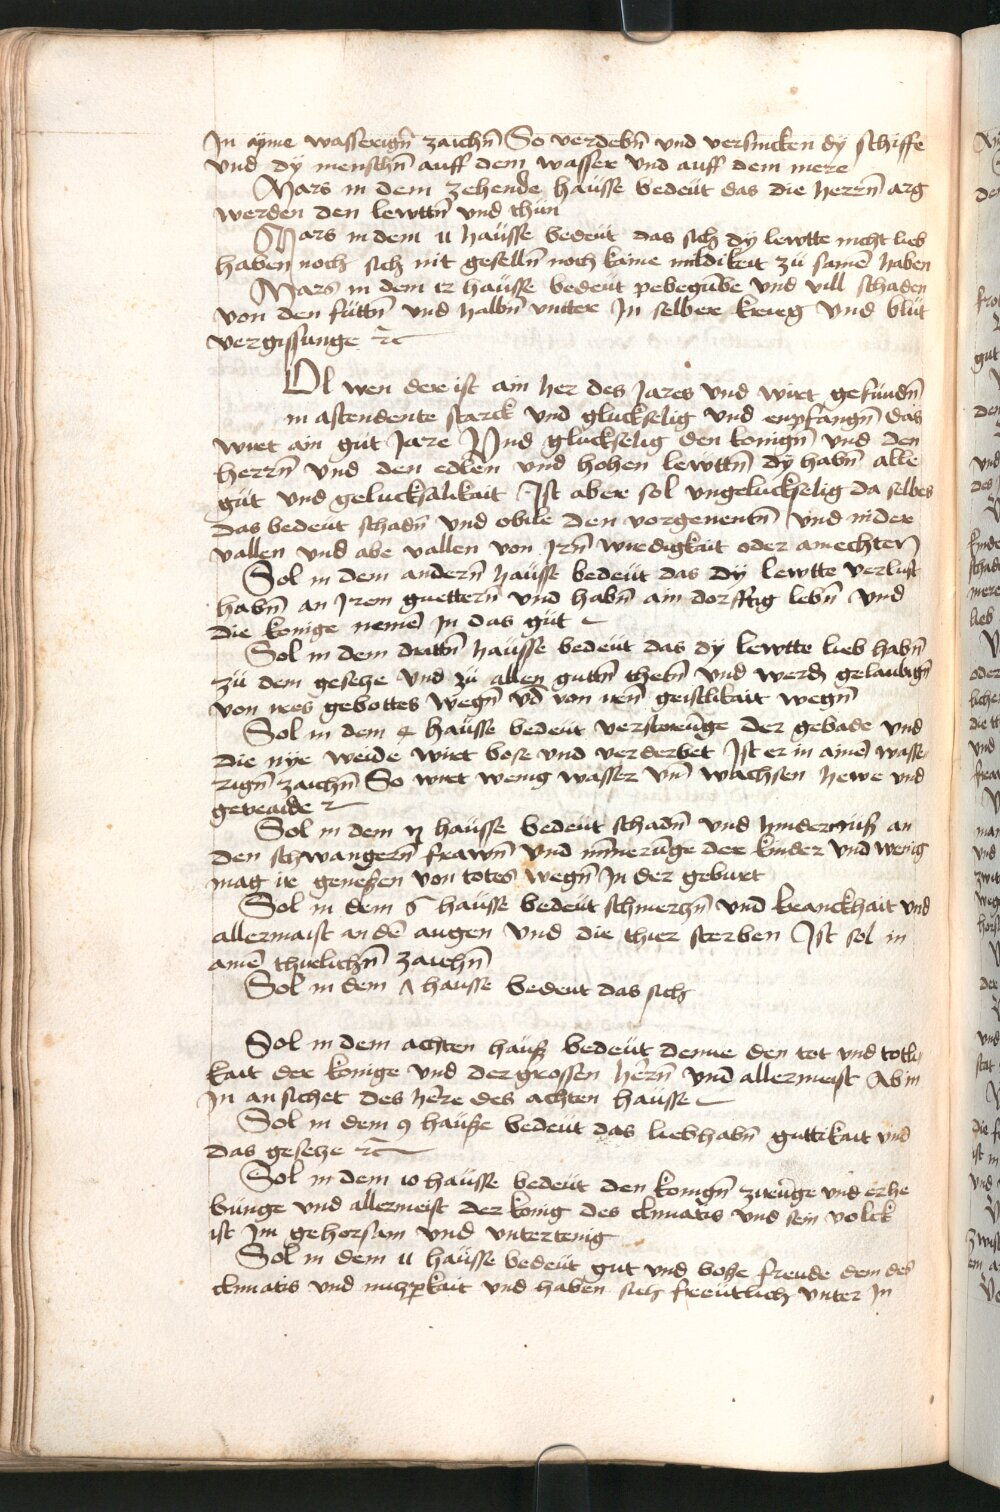 In ayme wasserign̄ zaichn̄ So verdebn̄ vnd versincken dy schiffe
vnd dy menschn̄ auff dem wasser vnd auff dem mere
Mars in dem zehende hausse bedeut das die herrn̄ arg
werden den lewttn̄ vnd thun
Mars in dem 11 hausse bedeut das sich dy lewtte nicht lieb
haben noch sich mit geselln̄ noch kaine mildikeit zu samē haben
Mars in dem 12 hausse bedeut vnd vill schaden
von den vnd halbn̄ vntter In selber krieg vnd blut
vergissunge ⁊c
Ol wen der ist ain her des Jares vnd wirt gefundn̄
in astendente starck vnd gluckselig vnd enpfangn̄ das
wirt ain gut Jare Vnd gluckselig den konign̄ vnd den
herrn̄ vnd den edlen vnd hohen lewttn̄ dy habn̄ alle
gut vnd gelucksalikait Ist aber sol vngeluckselig da selbes
das bedeut schadn̄ vnd obile den vorgenentn̄ vnd nider
vallen vnd abe vallen von Irn̄ wirdigkait oder amechten
Sol in dem andern̄ hausse bedeut das dy lewtte verlust
habn̄ an Irem guettern̄ vnd habn̄ ain dorfftig lebn̄ vnd
die konige nemē In das gut
Sol in dem drittn̄ hausse bedeut das dy lewtte lieb habn̄
zu dem gesecze vnd zu allen guttn̄ vnd werdn̄ gelaubign̄
von ires gebottes wegn̄ vd von irn̄ geistlikait wegn̄
Sol in dem 4 hausse bedeut verstorūge der gebade vnd
die weide wirt bose vnd verderbet Ist er in ainē wasse
rign̄ zaichn̄ So wirt wenig wasser vnd wachsen hewe vnd
getraide ⁊
Sol in dem hausse bedeut schadn̄ vnd hindernuß an
den schwangern̄ frawn̄ vnd minnerūge der kinder vnd wenig
mag ir genesen von totes wegn̄ In der geburt
Sol in dem 6 hausse bedeut schmerczn̄ vnd kranckhait vnd
allermaist an dē augen vnd die thier sterben Ist sol in
ainē thierlichn̄ zaichn̄
Sol in dem 7 hausse bedeut das sich
Sol in dem achten hauß bedeut denne den tot vnd totli
kait der konige vnd der grossen hern̄ vnd allermeist Ab in
In ansichet des here des achten hausse
Sol in dem 9 hauße bedeut das liebhabn̄ guttikait vnd
das gesecze ⁊c
Sol in dem 10 hausse bedeut den konign̄ vnd erhe
bunge vnd allermeist der konig des climatis vnd sein volck
ist Im gehorsam vnd vntertenig
Sol in dem 11 hausse bedeut gut vnd freude dem des
climatis vnd vnd haben sich freuntlich vnter In